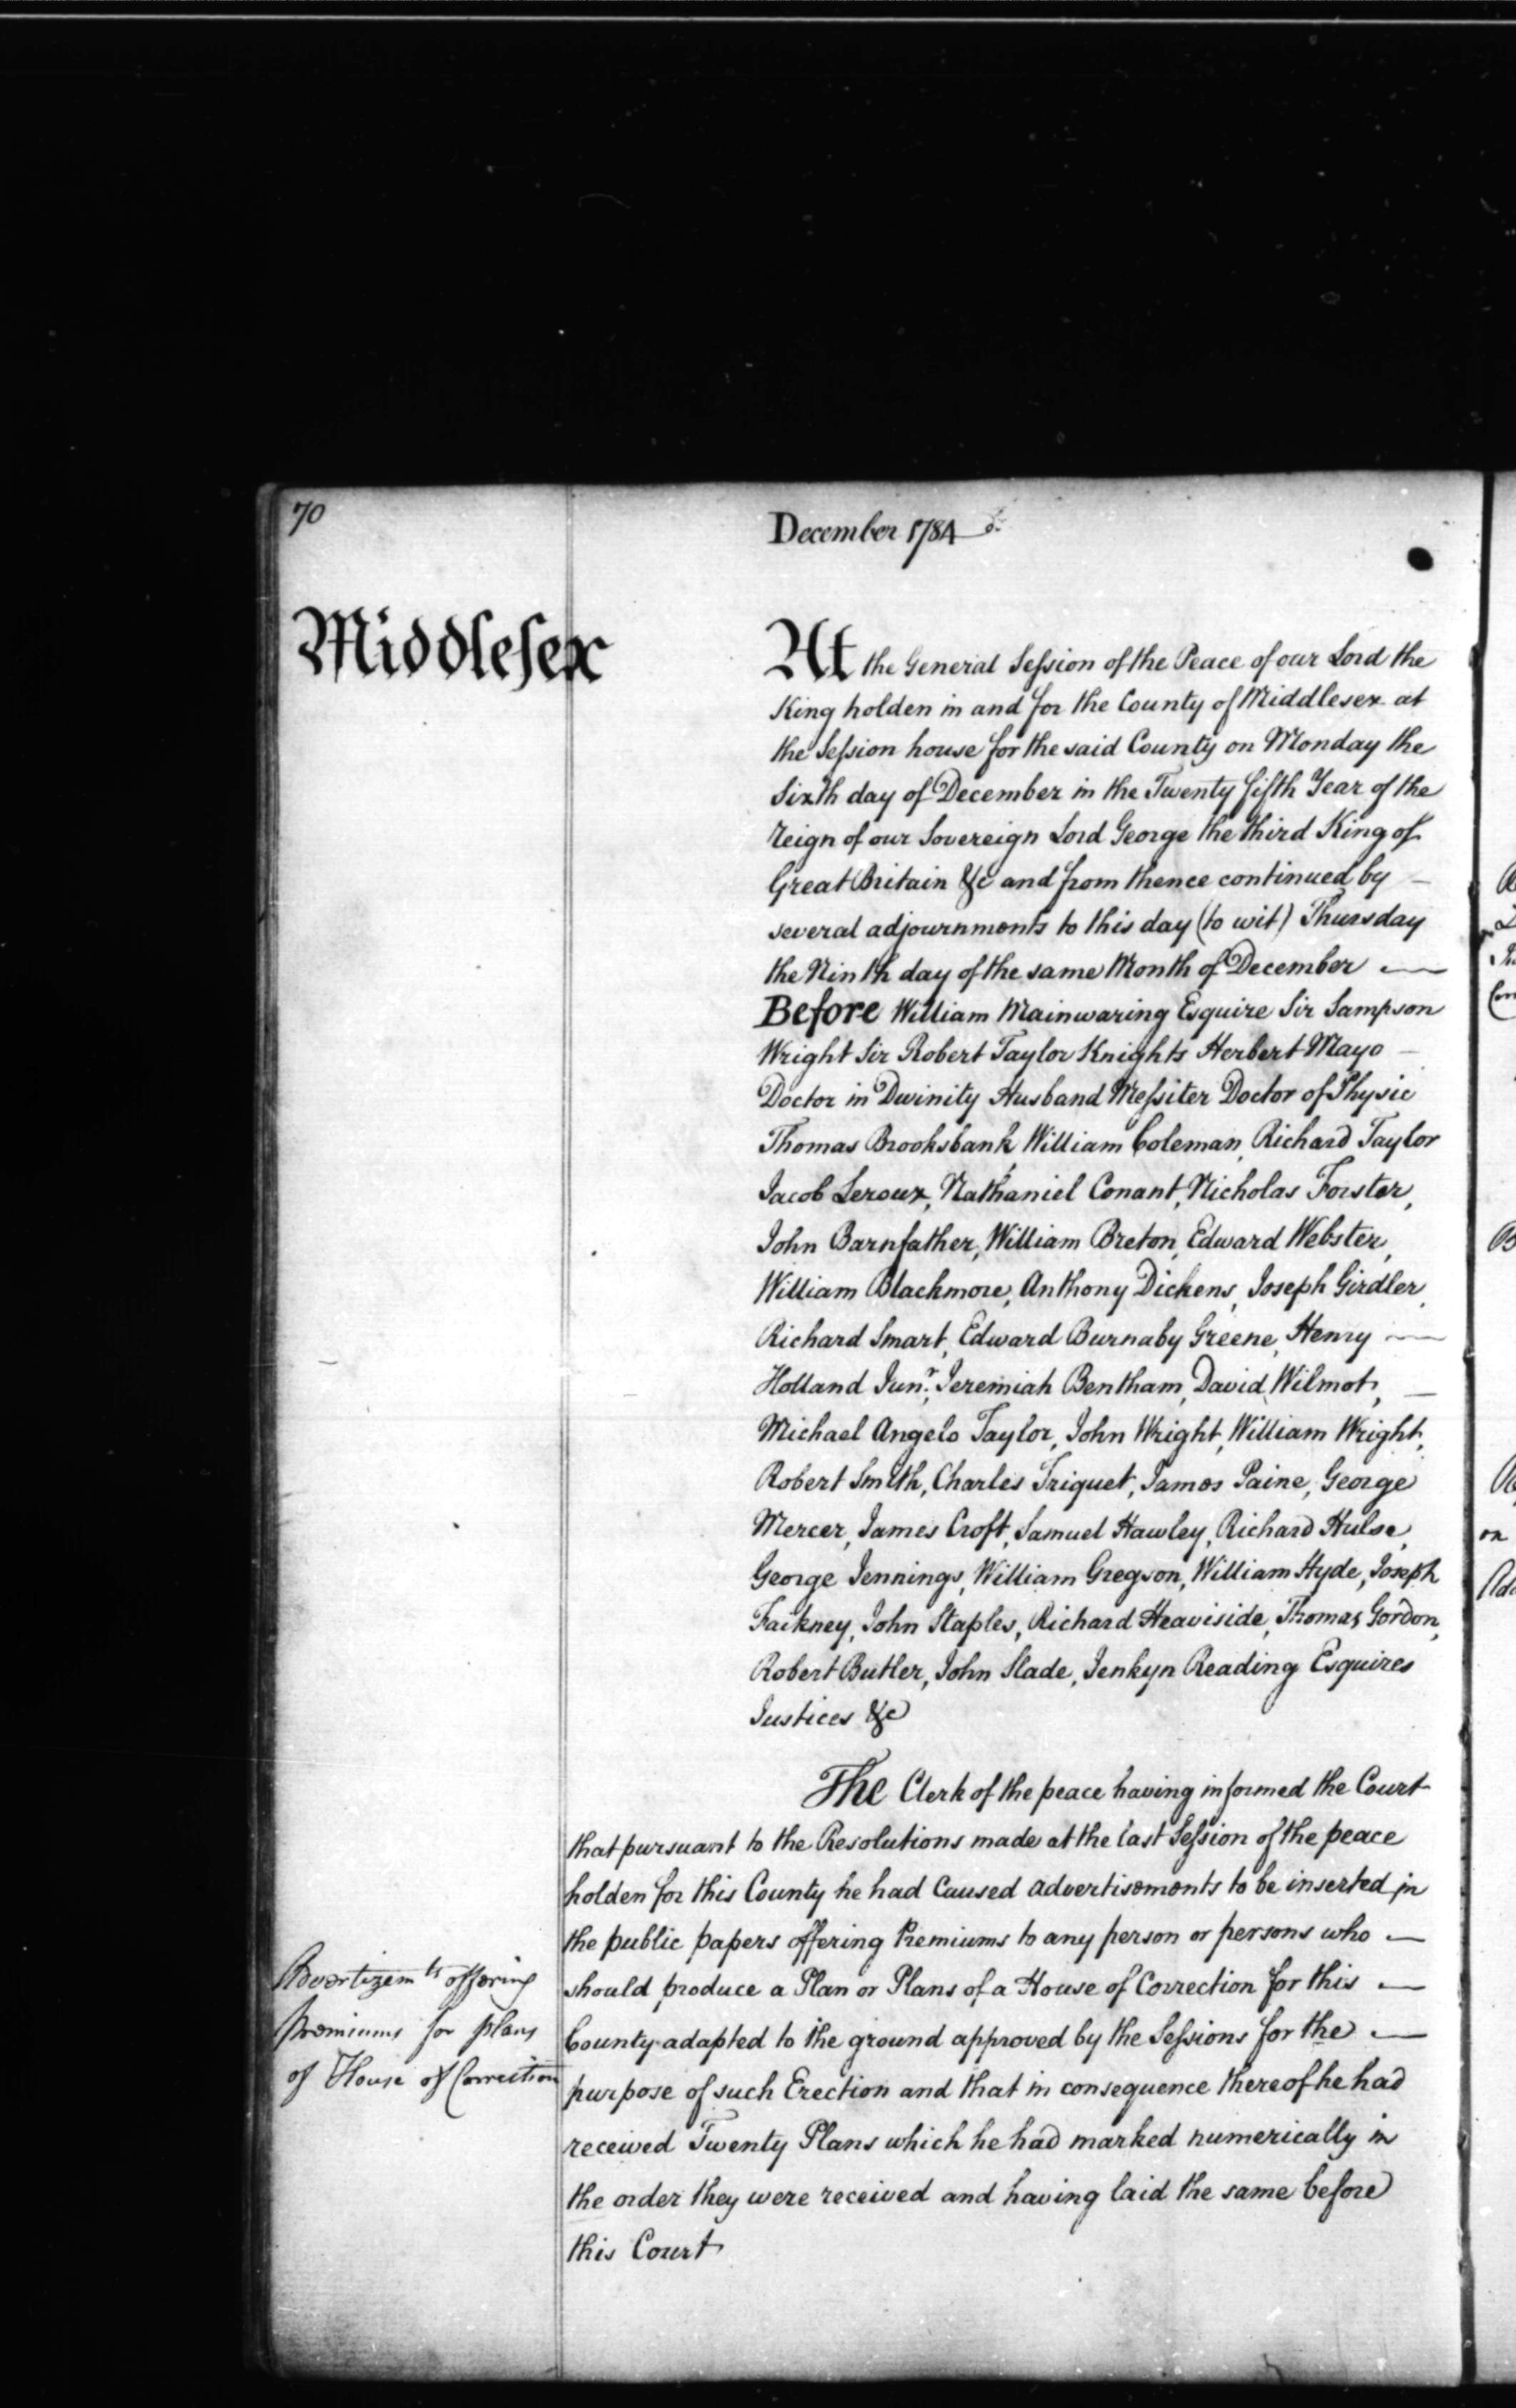 70
December 1784
Middlesex
At the General Session of the Peace of our Lord the
King holden in and for the County of Middlesex at
the Session house for the said County on Monday the
Sixth day of December in the Twenty fifth Year of the
reign of our Sovereign Lord George the third King of
Great Britain &c and from thence continued by
several adjournments to this day (to wit) Thursday
the Ninth day of the same Month of December
Before William Mainwaring Esquire Sir Sampson
Wright Sir Robert Taylor Knights Herbert Mayo
Doctor in Divinity Husband Messiter Doctor of Physic
Thomas Brooksbank William Coleman, Richard Taylor
Jacob Leroux, Nathaniel Conant, Nicholas Forster,
John Barnfather, William Breton, Edward Webster,
William Blackmore, Anthony Dickens, Joseph Girdler,
Richard Smart, Edward Burnaby Greene, Henry
Holland Junr., Jeremiah Bentham, David Wilmot,
Michael Angelo Taylor, John Wright, William Wright,
Robert Smith, Charles Triquet, James Paine, George
Mercer, James Croft, Samuel Hawley, Richard Hulse,
George Jennings, William Gregson, William Hyde, Joseph
Faikney, John Staples, Richard Heaviside, Thomas Gordon,
Robert Butler, John Slade, Jenkyn Reading Esquires
Justices &c
The Clerk of the peace having informed the Court
that pursuant to the Resolutions made at the last Session of the peace
holden for this County he had Caused advertisements to be inserted in
the public papers offering Premiums to any person or persons who
should produce a Plan or Plans of a House of Correction for this
County adapted to the ground approved by the Sessions for the
purpose of such Erection and that in consequence thereof he had
received Twenty Plans which he had marked numerically in
the order they were received and having laid the same before
this Court
Advertizemts offering
Premiums for plans
of House of Correction